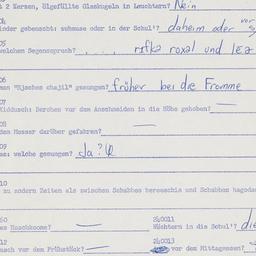 t 2 Kerzen, Ölgefüllte Glaskugeln in Leuchtern? Nein
inder gebenscht: zuhause oder in der Schul'? daheim oder vor
welchem Segensspruch? . . . . rifka roxal und lea
06
man "Ejsches chajil" gesungen? früher bei die Fromme
07
Kidduschi Brochen vor dem Anschneiden in die Höhe gehoben? —
08
den Messer darüber gefahren? —
09
es: welche gesungen? Ja?
10
zu andern Zeiten als zwischen Schabbes bereeschis und Schabbes hagodo
260
es Haschkome? —
2&0011
Nüchtern in die Schul'? die
12
usch vor dem Frühstück? —
2&0013
vor dem Mittagessen?